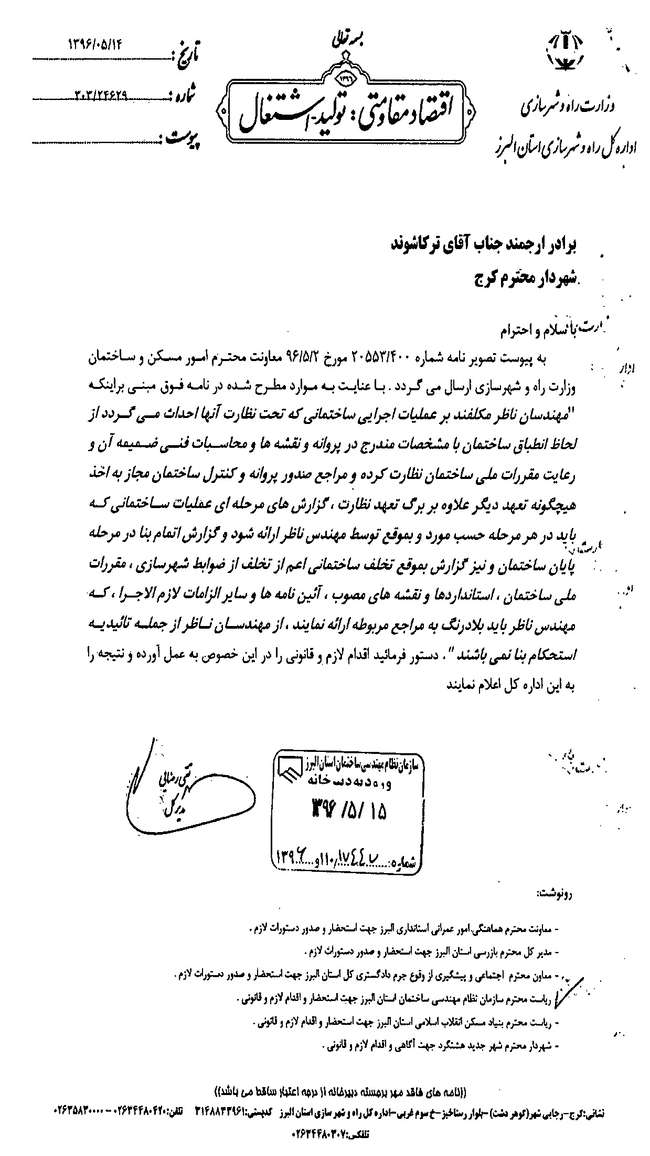 بسمه تعالی
وزارت راه و شهرسازی
اداره کل راه و شهرسازی استان البرز
۱۳۹۶
اقتصاد مقاومتی: تولید - اشتغال
تاریخ: ۱۳۹۶/۰۵/۱۴
شماره: ۲۰۳/۲۴۶۲۹
پیوست:
برادر ارجمند جناب آقای ترکاشوند
شهردار محترم کرج
با سلام و احترام
به پیوست تصویر نامه شماره ۲۰۵۵۳/۴۰۰ مورخ ۹۶/۵/۲ معاونت محترم امور مسکن و ساختمان
وزارت راه و شهرسازی ارسال می گردد . با عنایت به موارد مطرح شده در نامه فوق مبنی براینکه
"مهندسان ناظر مکلفند بر عملیات اجرایی ساختمانی که تحت نظارت آنها احداث می گردد از
لحاظ انطباق ساختمان با مشخصات مندرج در پروانه و نقشه ها و محاسبات فنی ضمیمه آن و
رعایت مقررات ملی ساختمان نظارت کرده و مراجع صدور پروانه و کنترل ساختمان مجاز به اخذ
هیچگونه تعهد دیگر علاوه بر برگ تعهد نظارت ، گزارش های مرحله ای عملیات ساختمانی که
باید در هر مرحله حسب مورد و بموقع توسط مهندس ناظر ارائه شود و گزارش اتمام بنا در مرحله
پایان ساختمان و نیز گزارش بموقع تخلف ساختمانی اعم از تخلف از ضوابط شهرسازی ، مقررات
ملی ساختمان ، استانداردها و نقشه های مصوب ، آئین نامه ها و سایر الزامات لازم الاجرا ، که
مهندس ناظر باید بلادرنگ به مراجع مربوطه ارائه نمایند ، از مهندسان ناظر از جمله تائیدیه
استحکام بنا نمی باشند " . دستور فرمائید اقدام لازم و قانونی را در این خصوص به عمل آورده و نتیجه را
به این اداره کل اعلام نمایند
تقی رضایی
مدیر کل
سازمان نظام مهندسی ساختمان استان البرز
ورود به دبیرخانه
۱۳۹۶/۵/۱۵
شماره:
رونوشت:
- معاونت محترم هماهنگی امور عمرانی استانداری البرز جهت استحضار و صدور دستورات لازم .
- مدیر کل محترم بازرسی استان البرز جهت استحضار و صدور دستورات لازم .
- معاون محترم اجتماعی و پیشگیری از وقوع جرم دادگستری کل استان البرز جهت استحضار و صدور دستورات لازم .
ریاست محترم سازمان نظام مهندسی ساختمان استان البرز جهت استحضار و اقدام لازم و قانونی .
- ریاست محترم بنیاد مسکن انقلاب اسلامی استان البرز جهت استحضار و اقدام لازم و قانونی .
- شهردار محترم شهر جدید هشتگرد جهت آگاهی و اقدام لازم و قانونی .
((نامه های فاقد مهر برجسته دبیرخانه از درجه اعتبار ساقط می باشد))
نشانی:کرج-رجایی شهر(گوهر دشت)-بلوار رستاخیز-خ سوم غربی-اداره کل راه و شهر سازی استان البرز کدپستی:۳۱۴۸۸۳۳۹۶۱ تلفن:۰۲۶۳۴۴۸۰۴۲۰ - ۰۲۶۳۵۸۳۰۰۰۰
تلفکس:۰۲۶۳۴۴۸۰۳۰۷